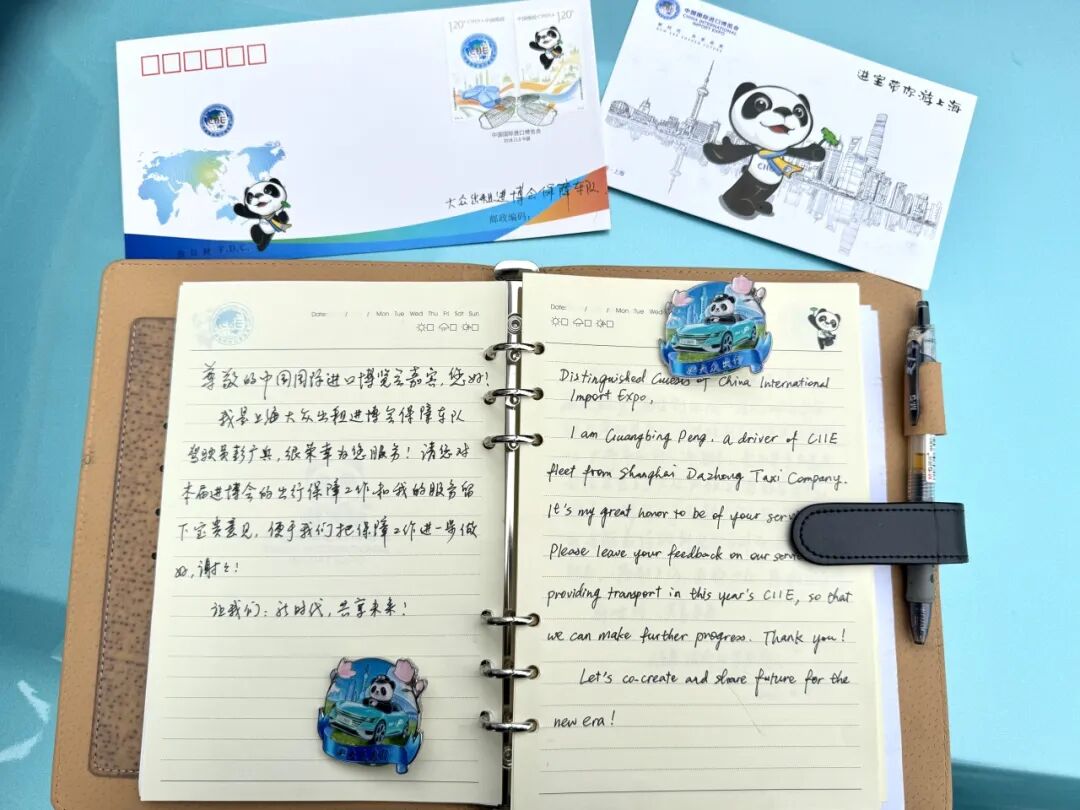 1.20 CHINA 中国邮政
中国邮政 CHINA 1.20
CIIE
中国国际进口博览会
大众出租进博会保障车队
邮政编码:
F.D.C.
中国国际进口博览会
CHINA INTERNATIONAL
IMPORT EXPO
NEW ERA SHARED FUTURE
进宝带你游上海
CIIE
Date: / / Mon Tue Wed Thu Fri Sat Sun
尊敬的中国国际进口博览会嘉宾,您好!
我是上海大众出租进博会保障车队
驾驶员彭广兵,很荣幸为您服务!请您对
本届进博会的出行保障工作和我的服务留
下宝贵意见,便于我们把保障工作进一步做
好,谢谢!
让我们:新时代,共享未来!
Date: / / Mon Tue Wed
Distinguished Guests of China International
Import Expo,
I am Guangbing Peng, a driver of CIIE
fleet from Shanghai Dazhong Taxi Company.
It's my great honor to be of your
Please leave your feedback on our
providing transport in this year's CIIE, so that
we can make further progress. Thank you!
Let's co-create and share future for the
new era!